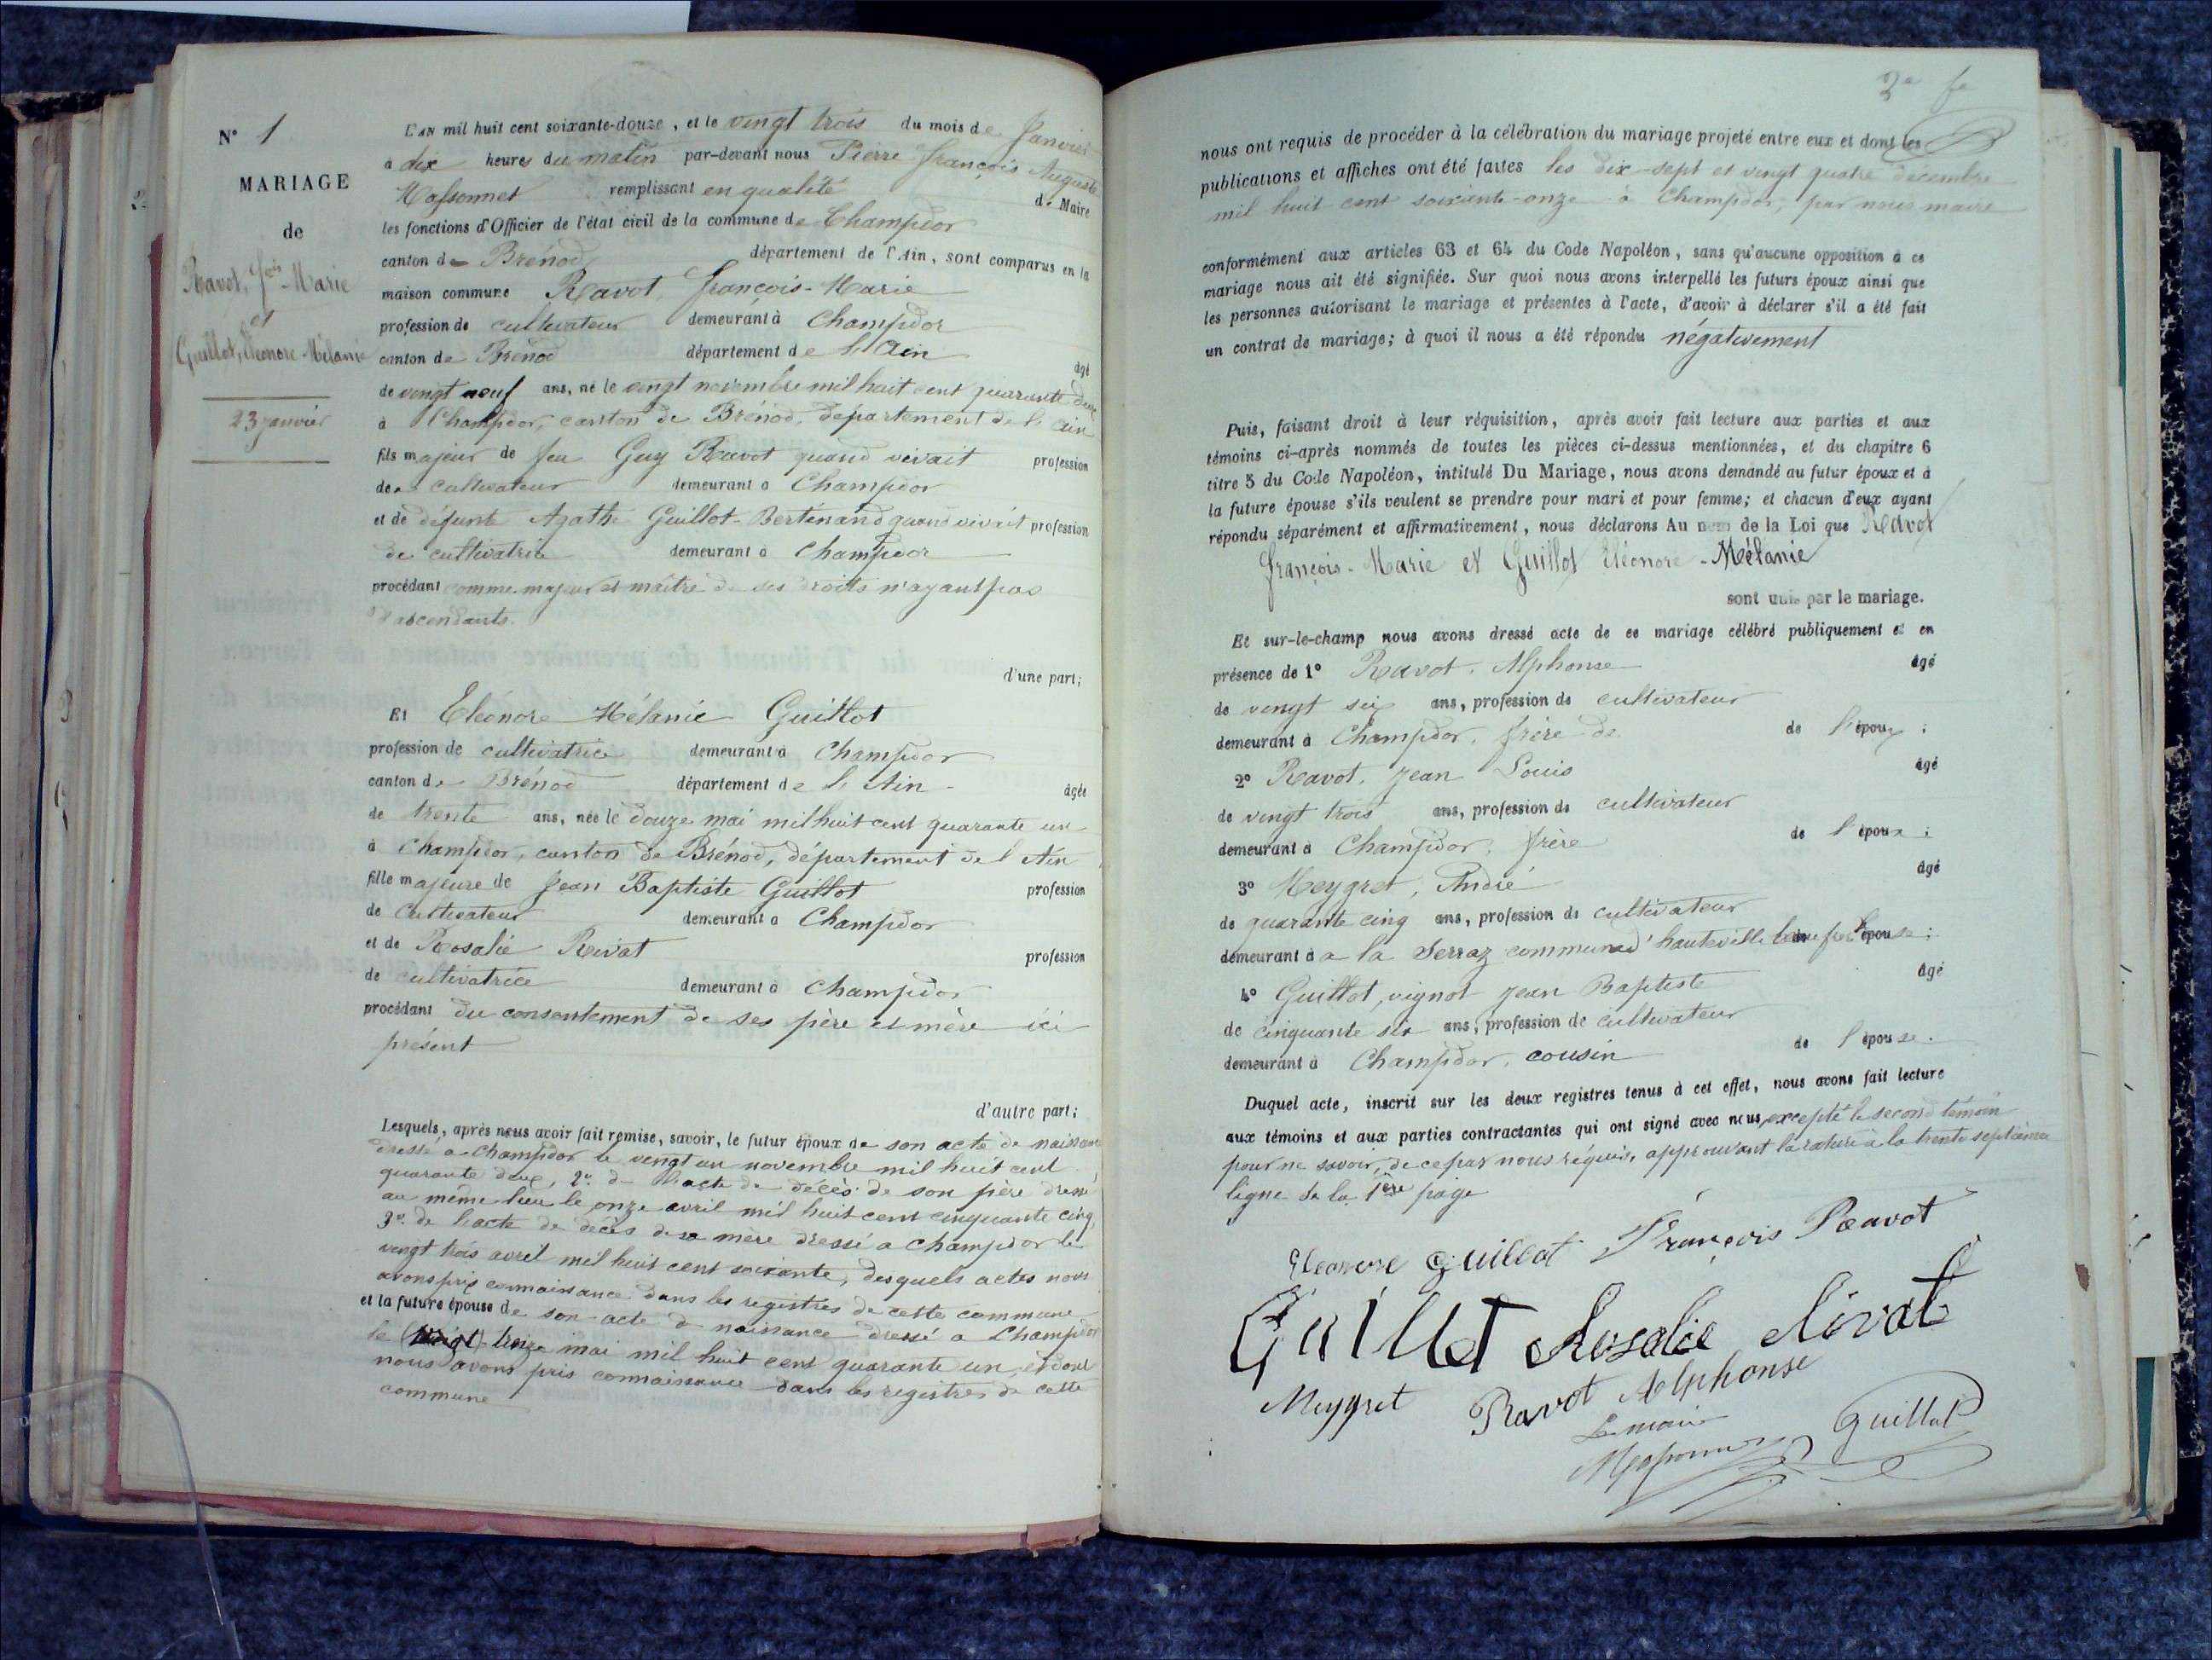 N° 1
MARIAGE
de
Ravot, Fois-Marie
et
Guillot, Eléonore-Mélanie
23 janvier
L'AN mil huit cent soixante-douze, et le vingt trois du mois de Janvier
à dix heures du matin par-devant nous Pierre François Auguste
Massonnet remplissant en qualité de Maire
les fonctions d'Officier de l'état civil de la commune de Champdor
canton de Brénod département de l'Ain, sont comparus en la
maison commune Ravot, François-Marie
profession de cultivateur demeurant à Champdor
canton de Brénod département de l'Ain âgé
de vingt neuf ans, né le vingt novembre mil huit cent quarante deux
à Champdor, canton de Brénod, département de l'Ain
fils majeur de feu Guy Ravot quand vivait profession
de cultivateur demeurant à Champdor
et de défunte Agathe Guillot-Bertenand quand vivait profession
de cultivatrice demeurant à Champdor
procédant comme majeur et maître de ses droits n'ayant pas
d'ascendants.
d'une part;
Et Eléonore Mélanie Guillot
profession de cultivatrice demeurant à Champdor
canton de Brénod département de l'Ain âgée
de trente ans, née le douze mai mil huit cent quarante un
à Champdor, canton de Brénod, département de l'Ain
fille majeure de Jean Baptiste Guillot profession
de cultivateur demeurant à Champdor
et de Rosalie Rivat profession
de cultivatrice demeurant à Champdor
procédant du consentement de ses père et mère ici
présent
d'autre part;
Lesquels, après nous avoir fait remise, savoir, le futur époux de son acte de naissance
dressé à Champdor le vingt un novembre mil huit cent
quarante deux, 2° de l'acte de décès de son père dressé
au même lieu le onze avril mil huit cent cinquante cinq,
3° de l'acte de décès de sa mère dressé a Champdor le
vingt trois avril mil huit cent soixante, desquels actes nous
avons pris connaissance dans les registres de cette commune
et la future épouse de son acte de naissance dressé a Champdor
le treize mai mil huit cent quarante un, et dont
nous avons pris connaissance dans les registres de cette
commune
nous ont requis de procéder à la célébration du mariage projeté entre eux et dont les
publications et affiches ont été faites les dix-sept et vingt quatre décembre
mil huit cent soixante-onze à Champdor, par nous maire
conformément aux articles 63 et 64 du Code Napoléon, sans qu'aucune opposition à ce
mariage nous ait été signifiée. Sur quoi nous avons interpellé les futurs époux ainsi que
les personnes autorisant le mariage et présentes à l'acte, d'avoir à déclarer s'il a été fait
un contrat de mariage; à quoi il nous a été répondu négativement
Puis, faisant droit à leur réquisition, après avoir fait lecture aux parties et aux
témoins ci-après nommés de toutes les pièces ci-dessus mentionnées, et du chapitre 6
titre 5 du Code Napoléon, intitulé Du Mariage, nous avons demandé au futur époux et à
la future épouse s'ils veulent se prendre pour mari et pour femme; et chacun d'eux ayant
répondu séparément et affirmativement, nous déclarons Au nom de la Loi que Ravot
François-Marie et Guillot Eléonore-Mélanie
sont unis par le mariage.
Et sur-le-champ nous avons dressé acte de ce mariage célébré publiquement et en
présence de 1° Ravot, Alphonse âgé
de vingt six ans, profession de cultivateur
demeurant à Champdor, frère de de l'époux;
2° Ravot, Jean Louis âgé
de vingt trois ans, profession de cultivateur
demeurant à Champdor, frère de l'époux;
3° Meygret, André âgé
de quarante cinq ans, profession de cultivateur
demeurant à a la Serraz commune d'hauteville épouse;
4° Guillot, vignot Jean Baptiste âgé
de cinquante six ans, profession de cultivateur
demeurant à Champdor, cousin de l'épouse.
Duquel acte, inscrit sur les deux registres tenus à cet effet, nous avons fait lecture
aux témoins et aux parties contractantes qui ont signé avec nous, excepté le second témoin
pour ne savoir, de ce par nous réquis, approuvant la rature à la trente septième
ligne de la 1ère page
Eleonore Guillot François Ravot
Guillot Rosalie Rivat
Meygret Ravot Alphonse
Le maire
Massonnet Guillot